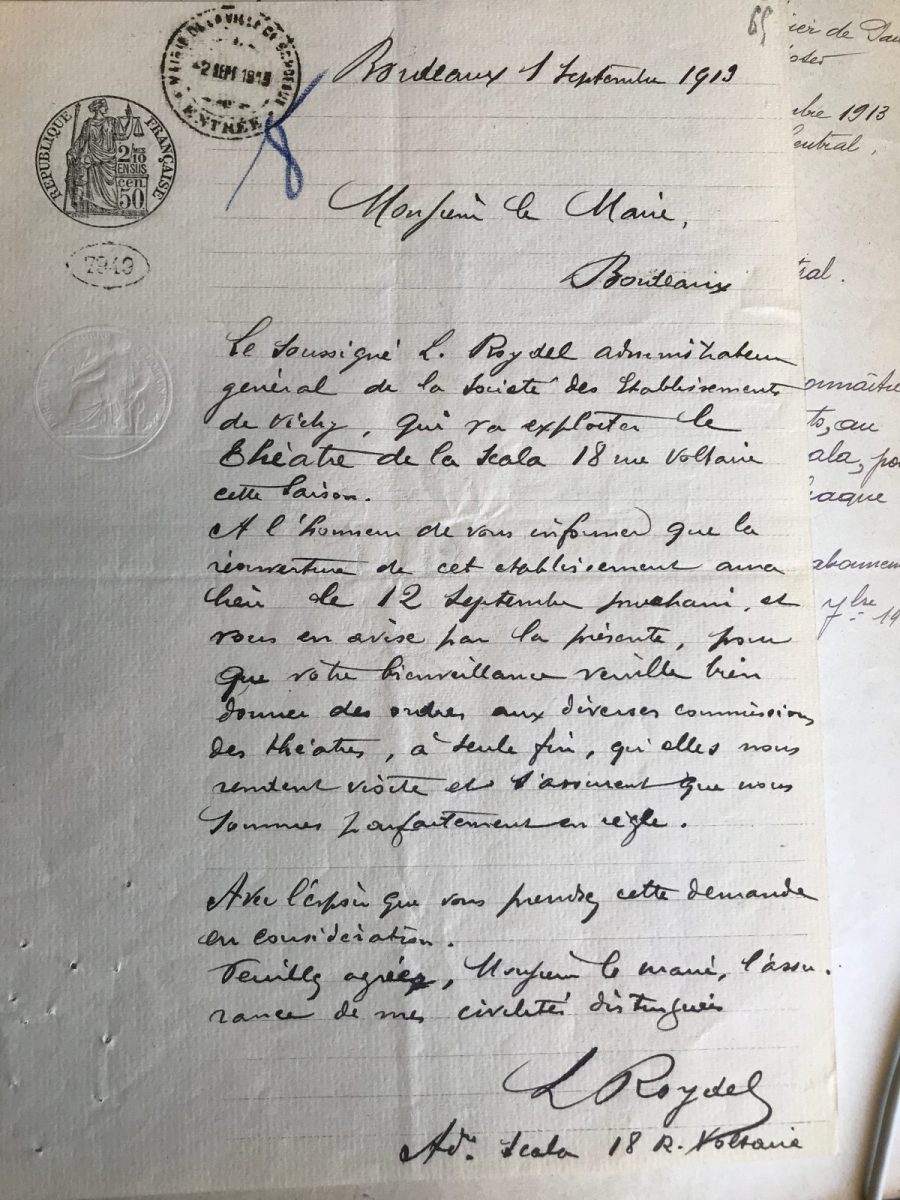 65
MAIRIE DE LA VILLE DE BORDEAUX
-2 SEPT 1913
ENTRÉE
Bordeaux 1 Septembre 1913
8
RÉPUBLIQUE FRANÇAISE
2/10
EN SUS
50 cen
7949
Monsieur le Maire,
Bordeaux
Le soussigné L. Roydel administrateur
général de la societé des Etablissements
de Vichy, qui va exploiter le
Théâtre de la Scala 18 rue Voltaire
cette saison.
A l'honneur de vous informer que la
réouverture de cet etablissement aura
lieu le 12 Septembre prochain, et
vous en avise par la présente, pour
que votre bienveillance veuille bien
donner des ordres aux diverses commissions
des théatres, à seule fin, qu'elles nous
rendent visite et s'assurent que nous
sommes parfaitement en règle.
Avec l'espoir que vous prendrez cette demande
en considération.
Veuillez agréez, Monsieur le maire, l'assu-
rance de mes civilités distinguées
L Roydel
Adr. Scala 18 R. Voltaire
ier de
bre 1913
entral,
tral.
onnaître
ts, au
ala, po
haque
abonnem
7bre 19